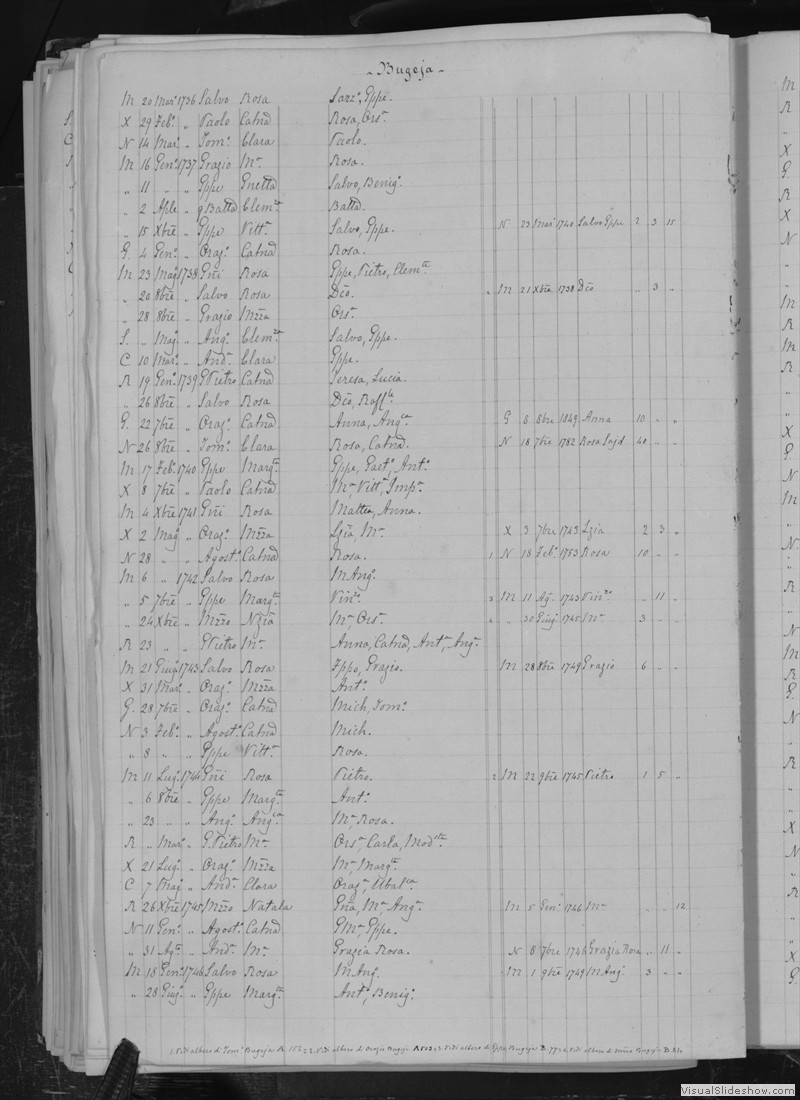 - Bugeja -
M 20 Mar° 1736 Salvo Rosa Sarr°, Gppe.
X 29 Feb° " Paolo Catnd Rosa, Ors.ª
N 14 Mar° " Tom° Clara Paolo.
M 16 Gen° 1737 Grazio Mª Rosa.
" 11 " " Gppe Gnetta Salvo, Benig°
" 2 Aple " gBatta Clemza Batta.
" 15 Xbre " Gppe Vittª Salvo, Gppe. N 23 Mar° 1740 Salvo Gppe 2 3 15
G. 4 Gen° " Oraz° Catnd Rosa.
M 23 Mag° 1738 Gñi Rosa Gppe, Pietro, Clemza
" 20 8bre " Salvo Rosa Dco. M 21 Xbre 1738 Dco " 3 "
" 28 8bre " Grazio Mzza Orsª
S. " Mag° " Ang° Clemza Salvo, Gppe.
C 10 Mar° " And.ª Clara Gppe.
R 19 Gen° 1739 GPietro Catnd Teresa, Lucia.
" 26 8bre " Salvo Rosa Dco, Raffle
G. 22 7bre " Oraz° Catnd Anna, Angca G 8 8bre 1849 Anna 10 " "
N 26 8bre " Tom° Clara Rosa, Catnd. N 18 7bre 1782 Rosa 40 " "
M 17 Feb° 1740 Gppe Margta Gppe, Gaet°, Ant°
X 8 7bre " Paolo Catnd Mª, Vittª, Impª
M 4 Xbre 1741 Gñi Rosa Mattia, Anna.
X 2 Mag° " Oraz° Mzza Lzia, Mª X 3 7bre 1743 Lzia 2 3 "
N 28 " " Agost° Catnd Rosa. 1 N 18 Feb° 1753 Rosa 10 " "
M 6 " 1742 Salvo Rosa MAng°
" 5 7bre " Gppe Margta Vinza 3 M 11 Ag° 1743 Vinza " 11 "
" 24 Xbre " Mzzo Nzia Mª Orsª " 30 Giug° 1745 Mª 3 " "
R 23 " " GPietro Mª Anna, Catnd, Antª, Angª
M 21 Giug° 1743 Salvo Rosa Fppo, Grazio. M 28 8bre 1749 Grazio 6 " "
X 31 Mar° " Oraz° Mzza Ant°
G. 28 7bre " Oraz° Catnd Mich, Tom°
N 3 Feb° " Agost° Catnd Mich.
" 8 " " Gppe Vittª Rosa.
M 11 Lug° 1744 Gñi Rosa Pietro. 2 M 22 9bre 1745 Pietro 1 5 "
" 6 8bre " Gppe Margta Ant°
" 23 " " Ang° Angca Mª Rosa.
R " Mar° " GPietro Mª Orsª, Carla, Modta
X 21 Lug° " Oraz° Mzza Mª, Margta
C 7 Mag° " And.ª Clara Oraz°, Ubalca
R 26 Xbre 1745 Mzzo Natala Gna, Mª, Angª M 5 Gen° 1746 Mª " " 12
N 11 Gen° " Agost° Catnd GMª, Gppe.
" 31 Ag° " And.ª Mª Grazia Rosa. N 8 7bre 1746 Grazia Rosa " 11 "
M 18 Gen° 1746 Salvo Rosa MAng. M 1 9bre 1749 MAng° 3 " "
" 28 Giug° " Gppe Margta Ant°, Benig°
1. Vidi albero di Tom° Bugeja 2. Vidi albero di Orazio Bugeja 3. Vidi albero di Gppe Bugeja
VisualSlideshow.com